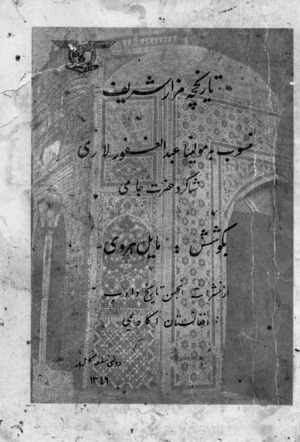 تاریخچه مزار شریف
منسوب به مولینا عبدالغفور لاری
شاگرد حضرت جامی
بکوشش : مایل هروی
از نشرات انجمن تاریخ و ادب
افغانستان اکادومی
دولتی مطبعه
۱۳۴۹